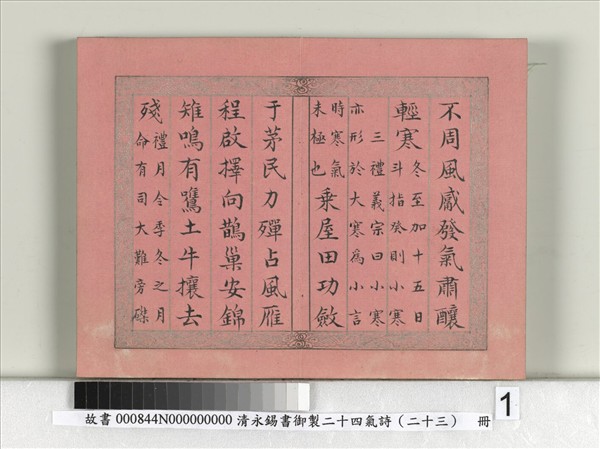 不周風發氣肅釀
輕寒
冬至加十五日
斗指癸則小寒
三禮義宗曰小寒
亦形於大寒為小言
時寒氣
未極也
乘屋田功斂
于茅民力殫占風雁
程啟擇向鵲巢安錦
雉鳴有鷕土牛攘去
殘
禮月令季冬之月
命有司大難旁磔
故書 000844N000000000 清永錫書御製二十四氣詩（二十三） 冊
1